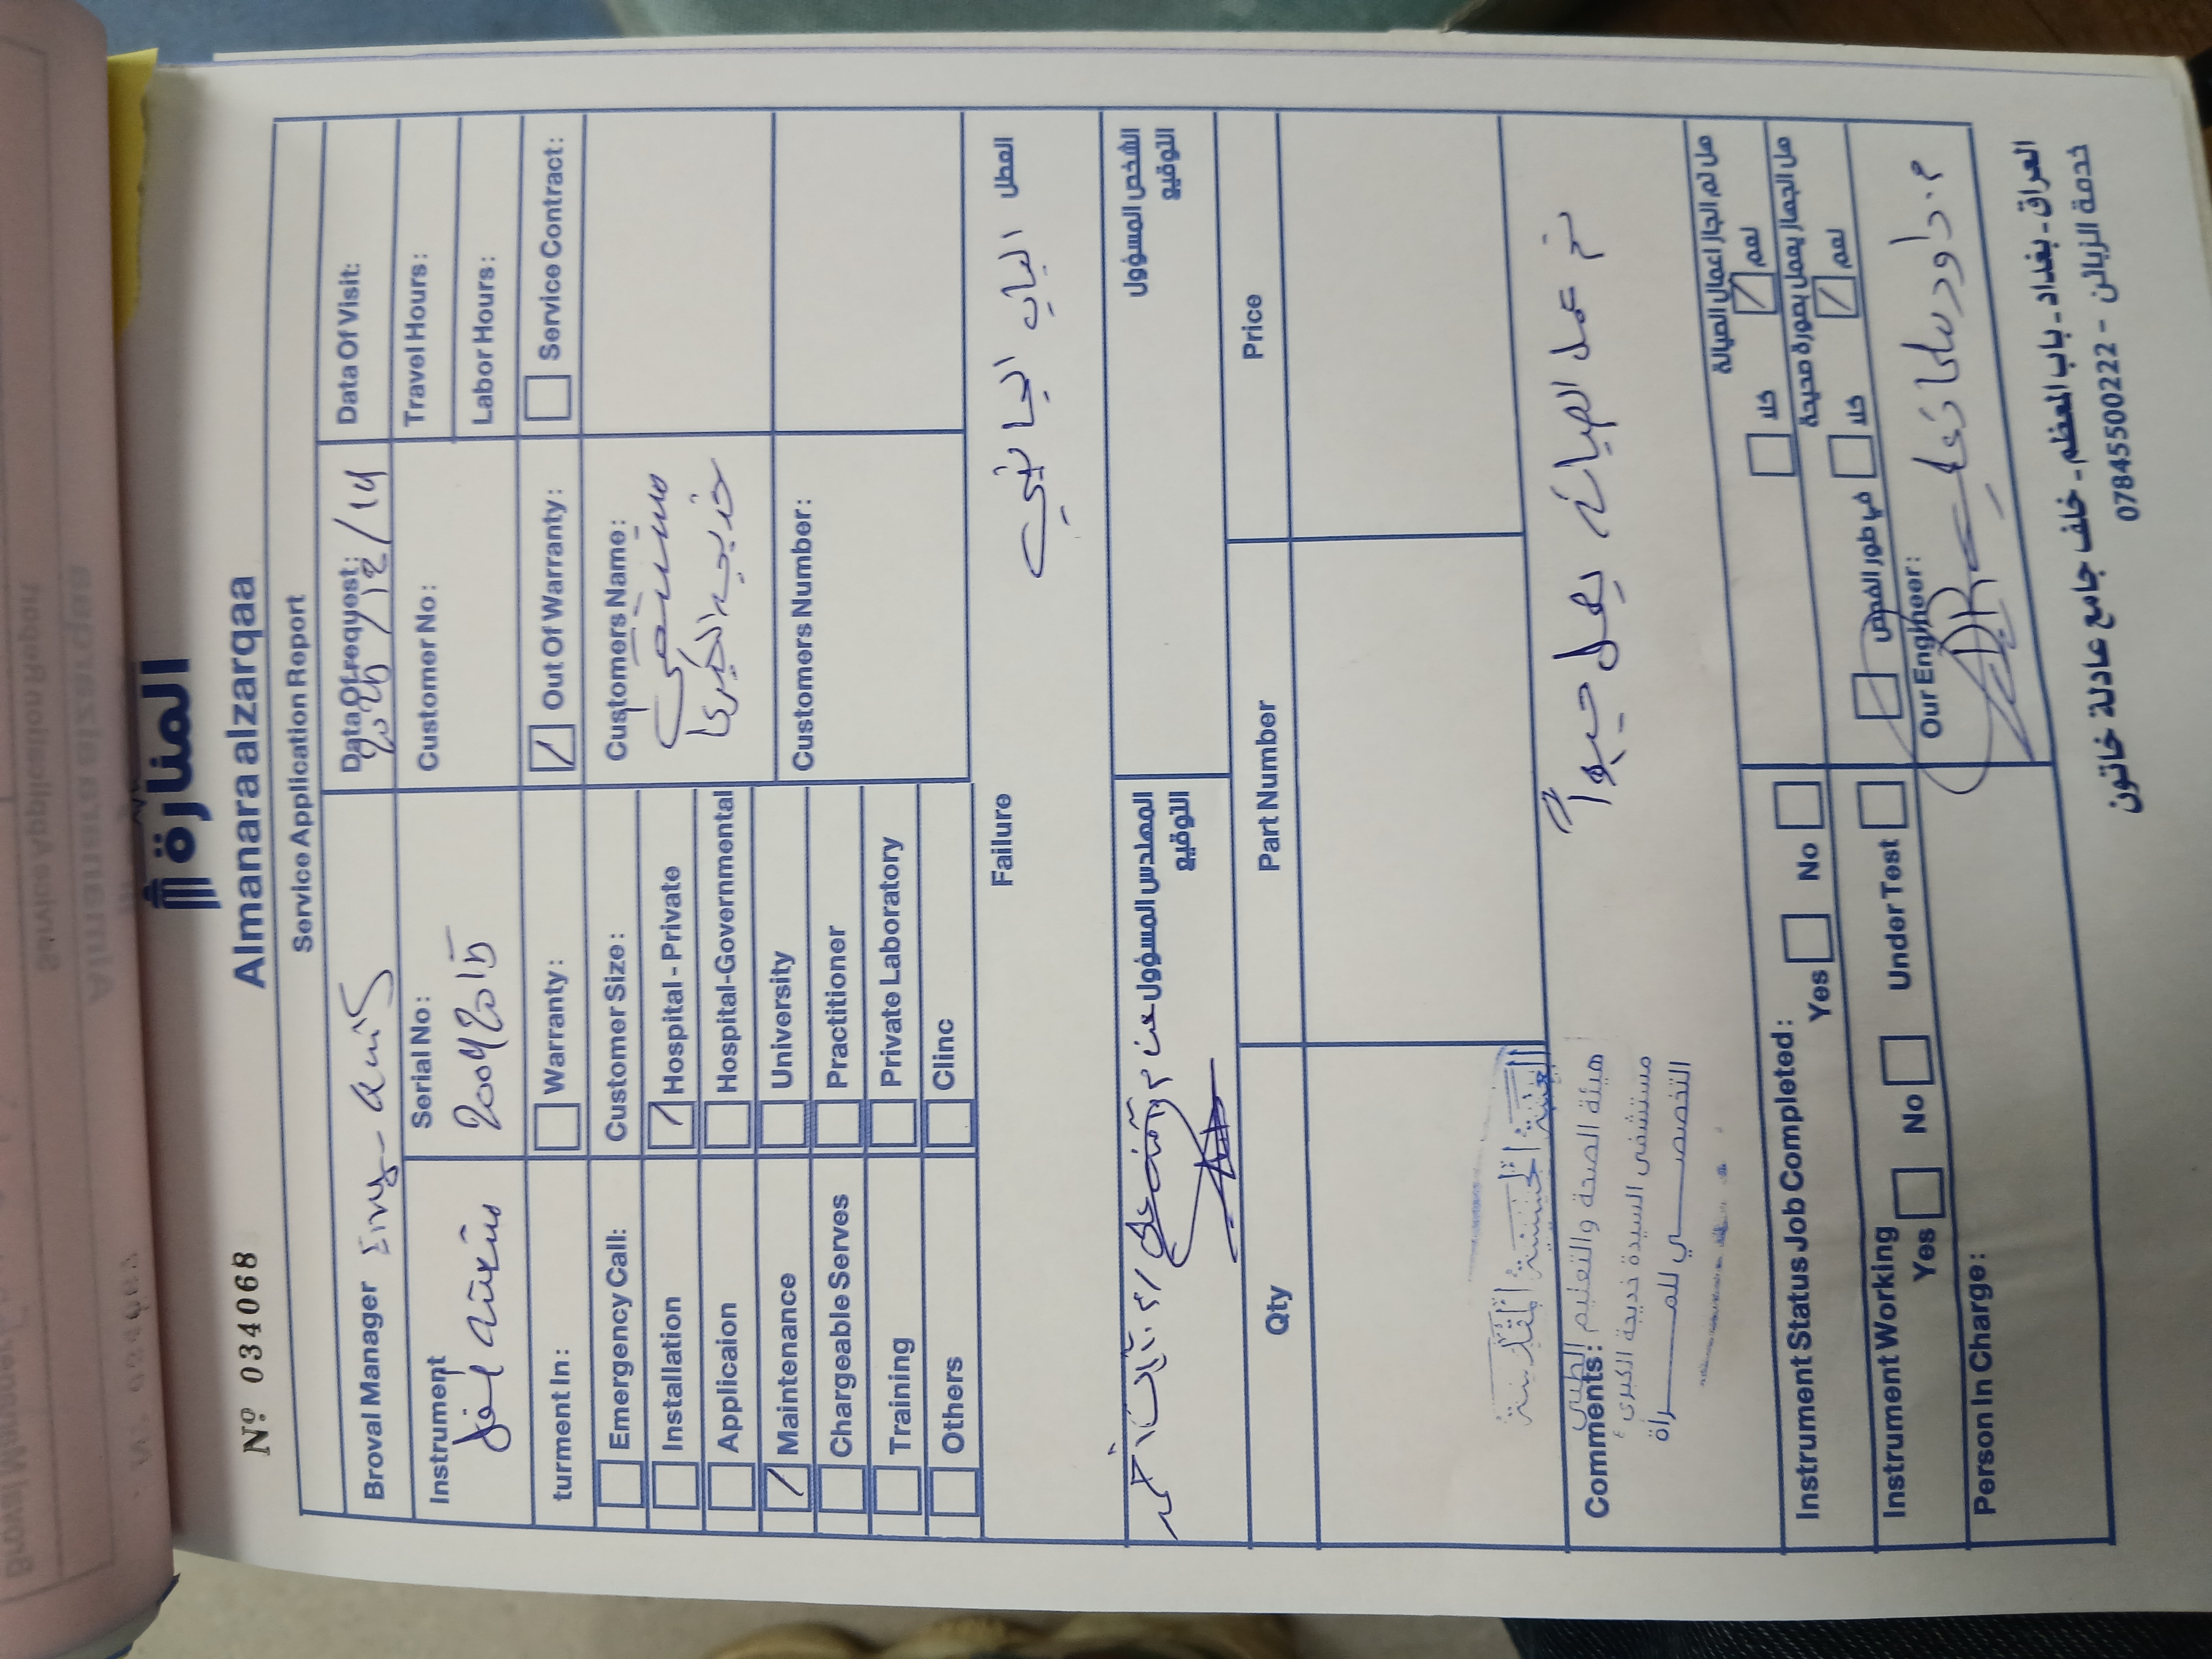 Nº 034068
المنارة
Almanara alzarqaa
Service Application Report
Broval Manager
Data Of request:
2025/12/14
Data Of Visit:
Instrument
Serial No:
20092015
Customer No:
Travel Hours:
Labor Hours:
turment In:
Warranty:
Out Of Warranty:
Service Contract:
Emergency Call:
Installation
Applicaion
Maintenance
Chargeable Serves
Training
Others
Customer Size:
Hospital - Private
Hospital-Governmental
University
Practitioner
Private Laboratory
Clinc
Customers Name:
مستشفى
خديجة الكبرى
Customers Number:
Failure
العطل
الباب الجانبي
المهندس المسؤول
التوقيع
الشخص المسؤول
التوقيع
Qty
Part Number
Price
العتبة الحسينية المقدسة
هيئة الصحة والتعليم الطبي
مستشفى السيدة خديجة الكبرى
التخصصي للمرأة
Comments:
تم عمل الصيانة يعمل جيداً
Instrument Status Job Completed:
Yes
No
هل تم انجاز اعمال الصيانة
كلا
نعم
Instrument Working
Yes
No
Under Test
هل الجهاز يعمل بصورة صحيحة
في طور الفحص
كلا
نعم
Person In Charge:
Our Engineer:
م. داود سلمان
العراق - بغداد - باب المعظم - خلف جامع عادلة خاتون
خدمة الزبائن - 07845500222